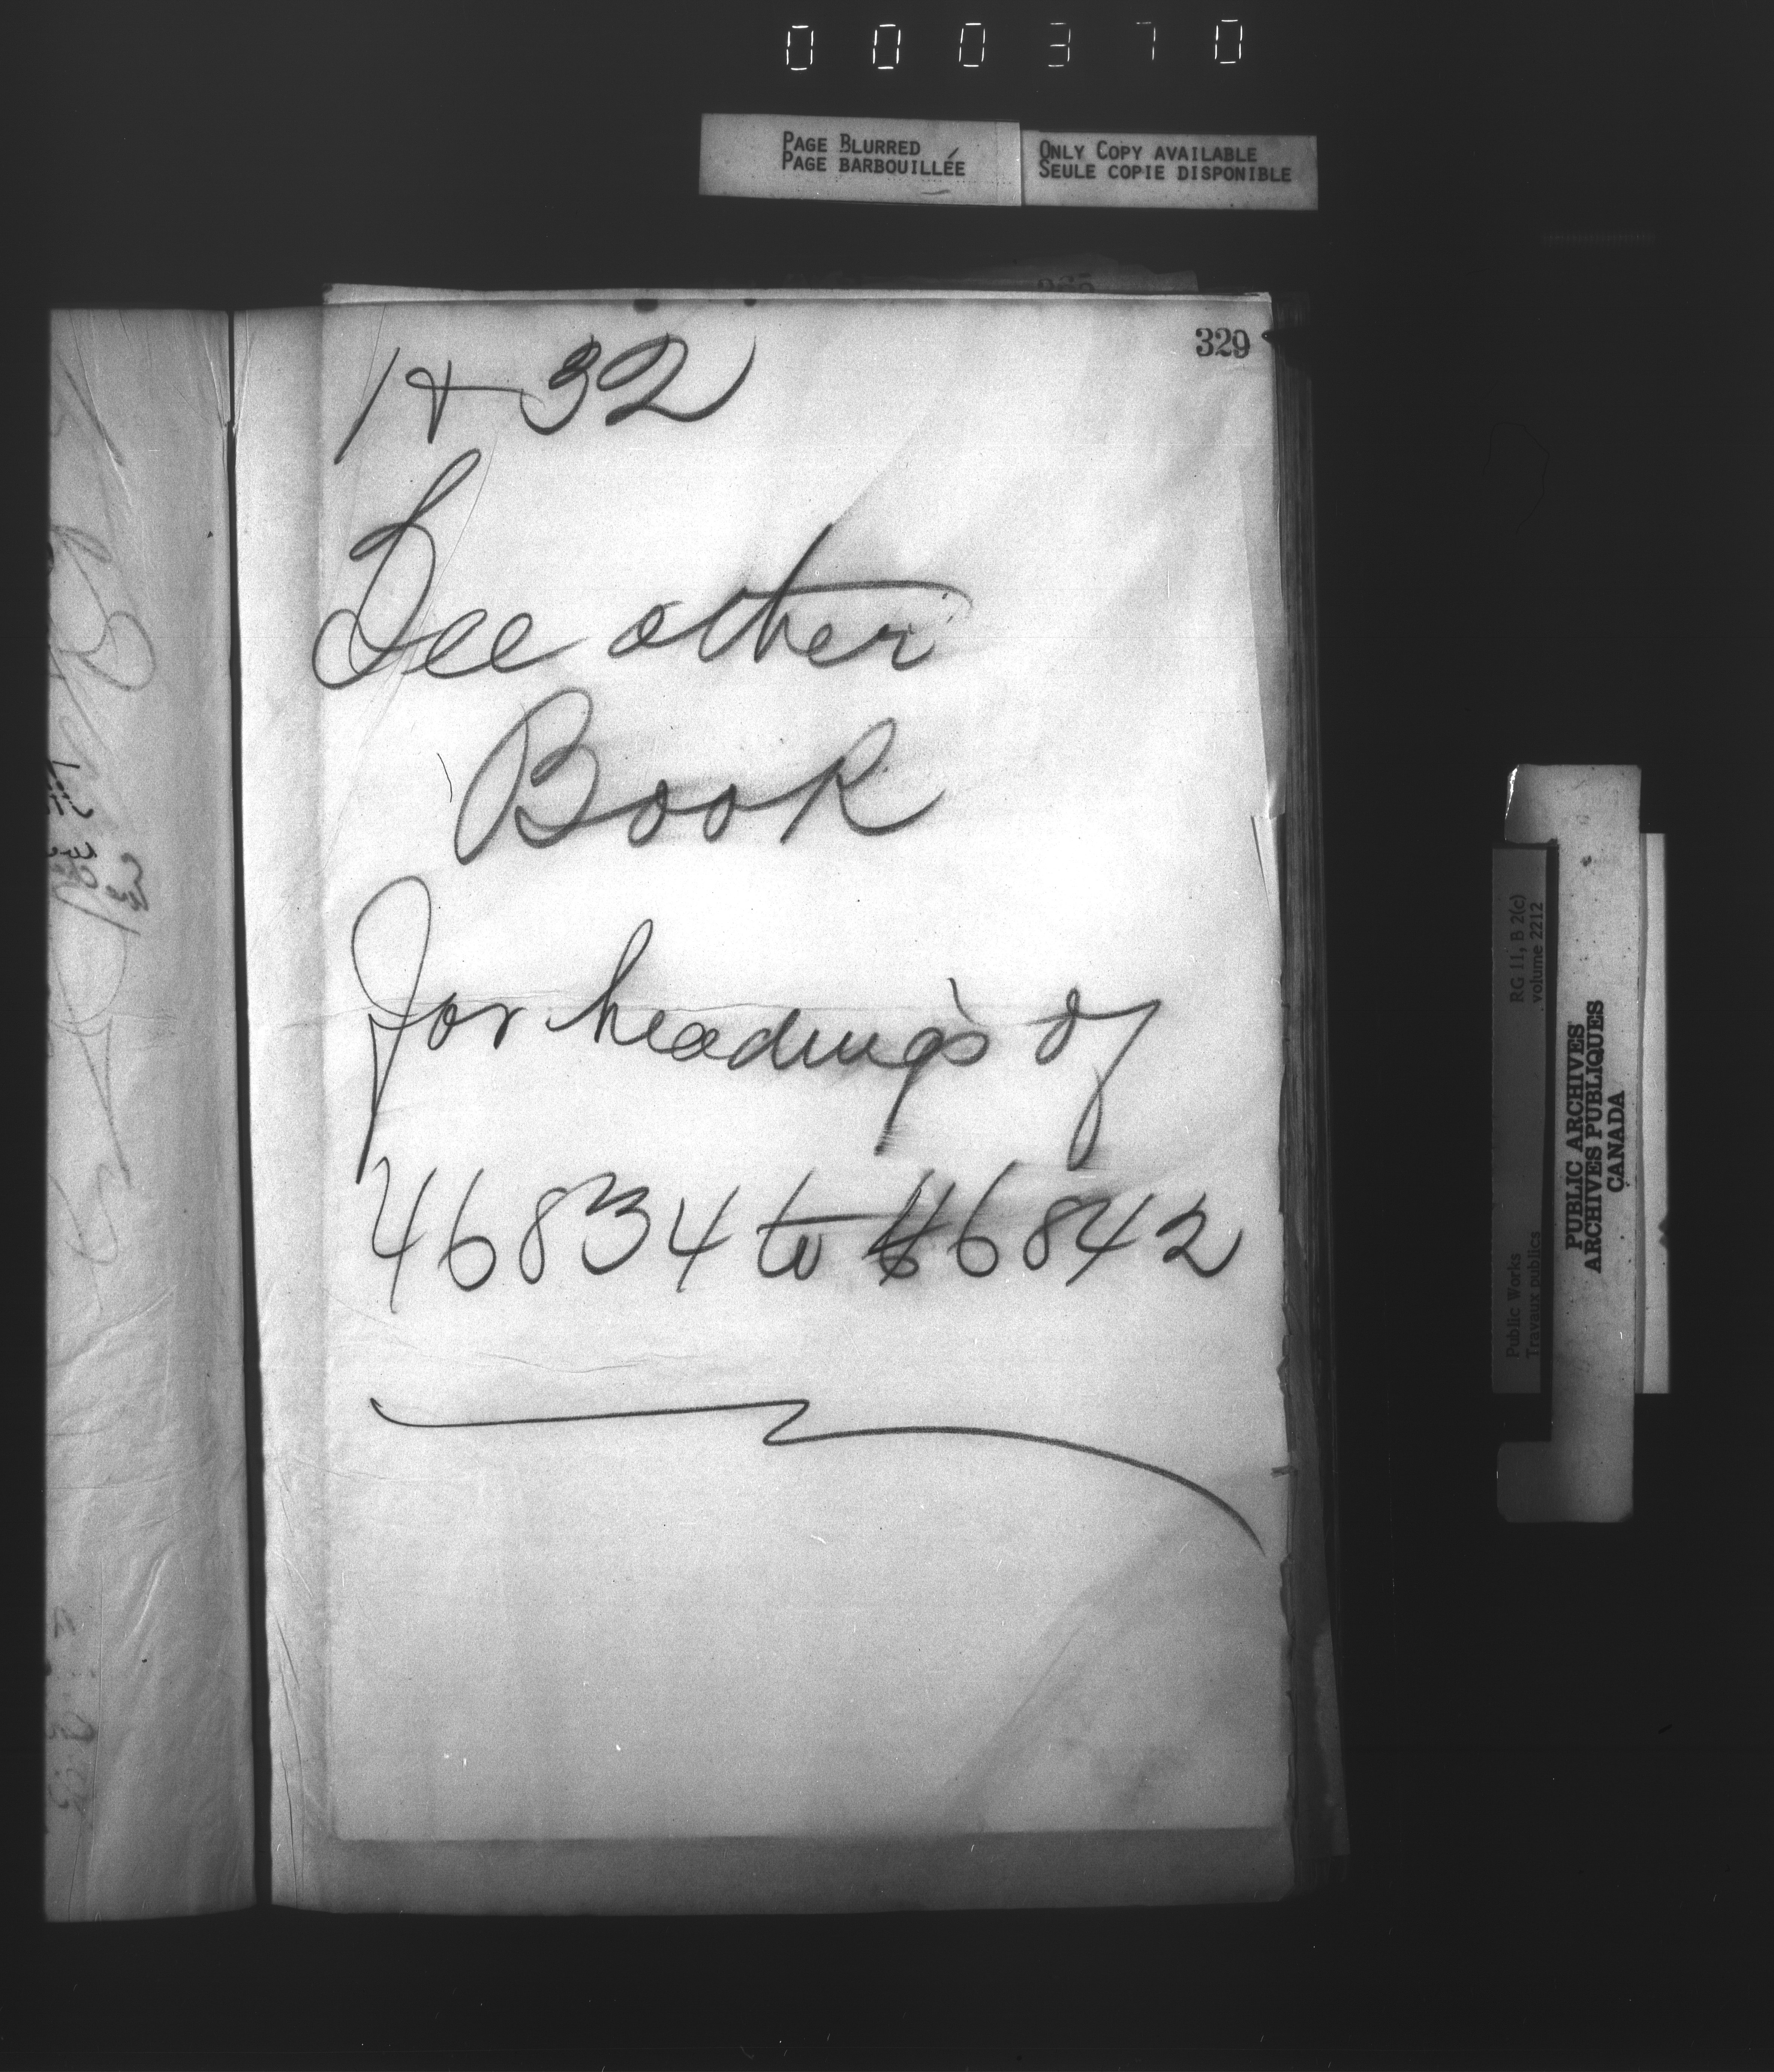 000370
PAGE BLURRED
PAGE BARBOUILLÉE
ONLY COPY AVAILABLE
SEULE COPIE DISPONIBLE
329
See other
Book
for headings of
46834 to 46842
RG 11, B 2(c)
volume 2212
Public Works
Travaux publics
PUBLIC ARCHIVES
ARCHIVES PUBLIQUES
CANADA